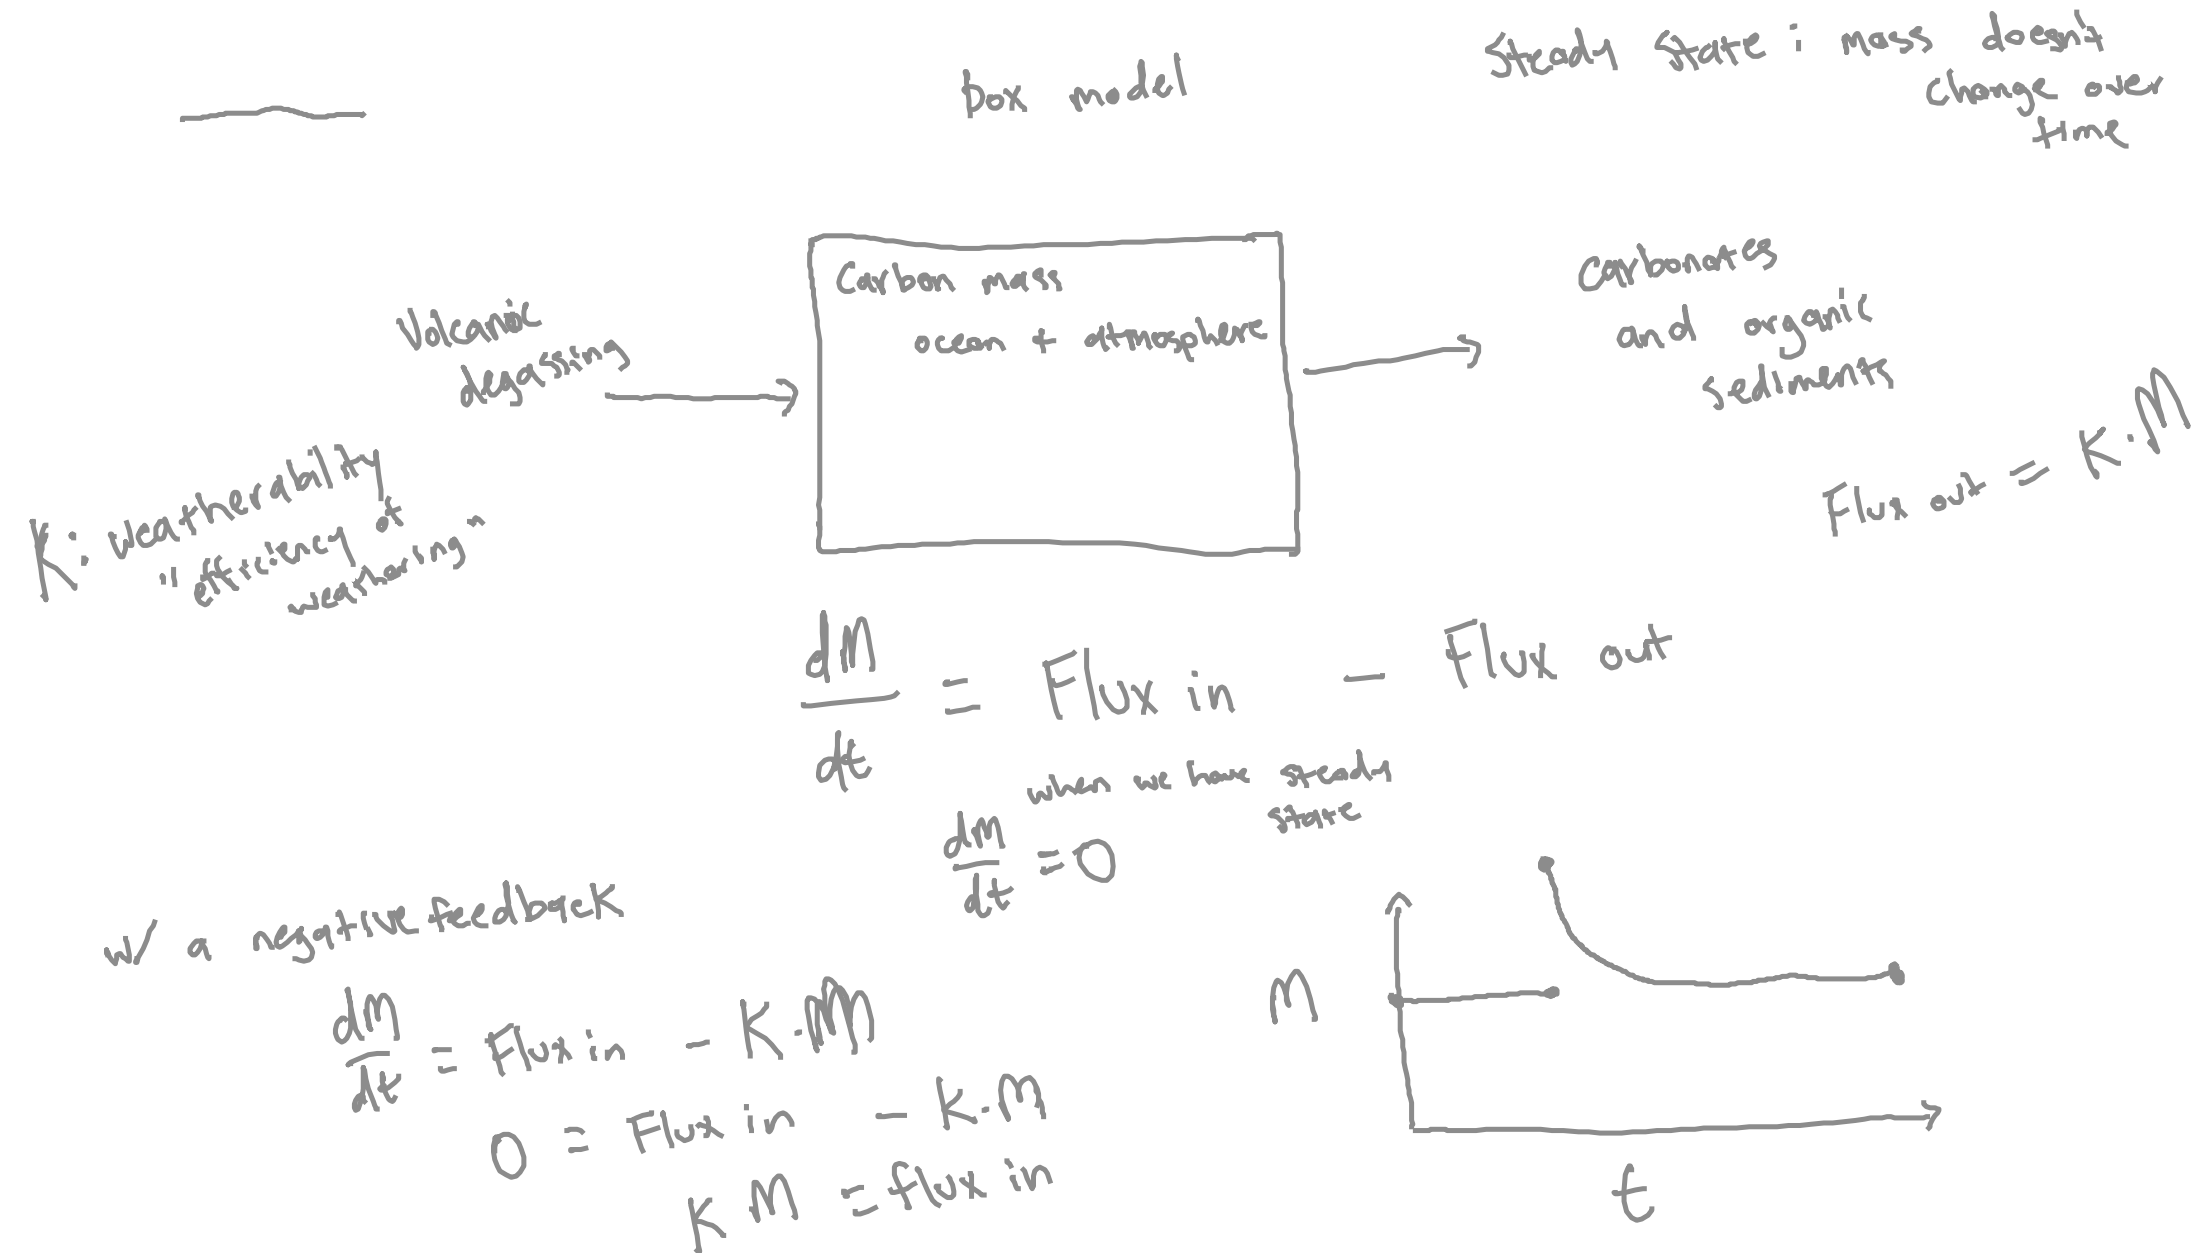 Box model
Steady State : mass doesn't
change over
time
Volcanic
degassing
Carbon mass
ocean + atmosphere
Carbonates
and organic
sediments
Flux out = K·M
K: weatherability
"efficiency of
weathering"
dM/dt = Flux in - Flux out
when we have steady
state
dM/dt = 0
w/ a negative feedback
dM/dt = Flux in - K·M
0 = Flux in - K·M
K M = flux in
M
t